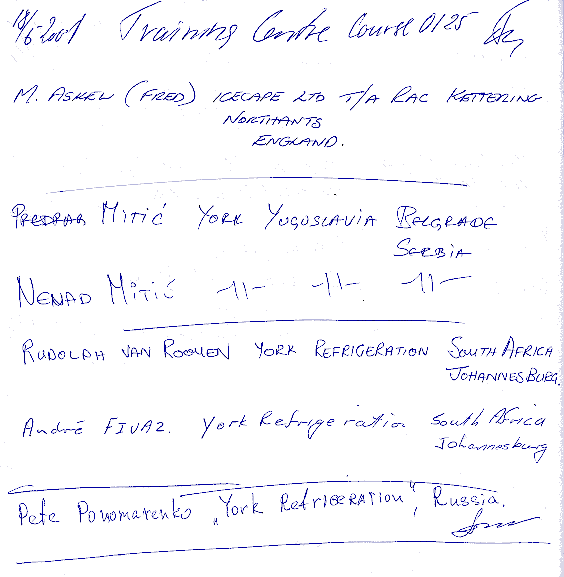 18/6-2001 Training Centre Course 0125
M. ASKEW (FRED) ICECAPE LTD T/A RAC KETTERING
NORTHANTS
ENGLAND.
PREDRAG MITIĆ YORK YUGOSLAVIA BELGRADE
SERBIA
NENAD MITIĆ -11- -11- -11-
RUDOLPH VAN ROOYEN YORK REFRIGERATION SOUTH AFRICA
JOHANNESBURG.
André FIVAZ. York Refrigeration South Africa
Johannesburg
Pete Ponomarenko „York Refrigeration", Russia.